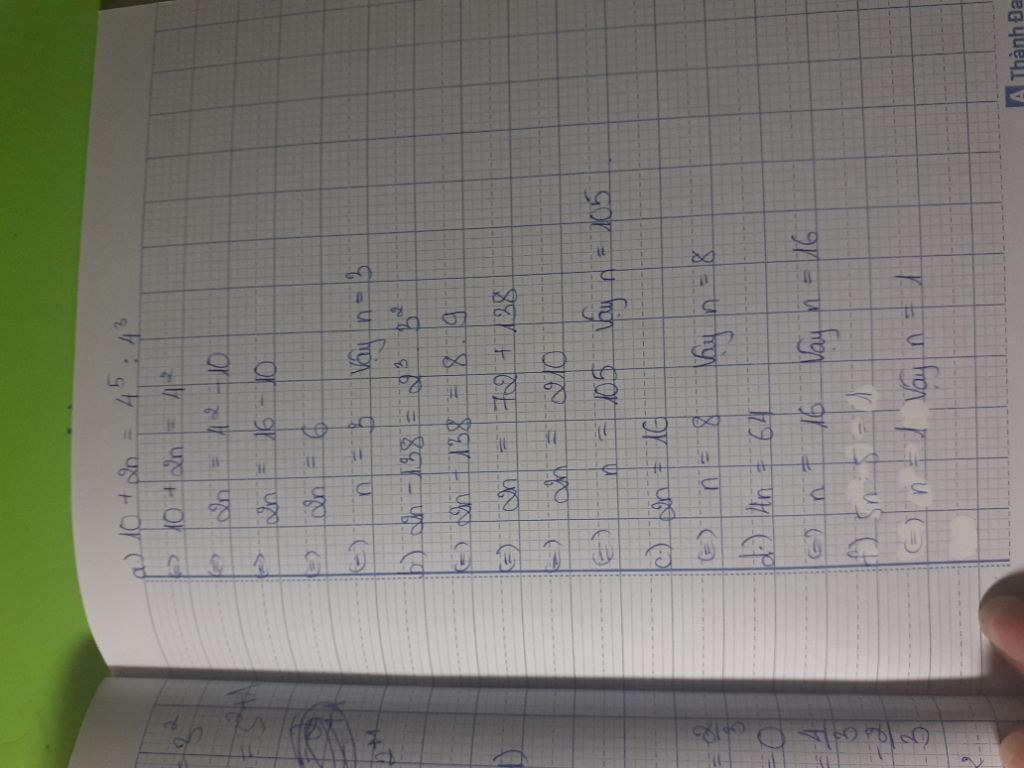 a) 10 + 2n = 4⁵ : 4³
⇔ 10 + 2n = 4²
⇔ 2n = 4² - 10
⇔ 2n = 16 - 10
⇔ 2n = 6
⇔ n = 3 Vậy n = 3
b) 2n - 138 = 2³ . 3²
⇔ 2n - 138 = 8 . 9
⇔ 2n = 72 + 138
⇔ 2n = 210
⇔ n = 105 Vậy n = 105
c) 2n = 16
⇔ n = 8 Vậy n = 8
d) 4n = 64
⇔ n = 16 Vậy n = 16
f) 5n : 5 = 1
⇔ n = 1 Vậy n = 1
A Thành Đạ
3²
= 2
3
= 0
= 4
3
3